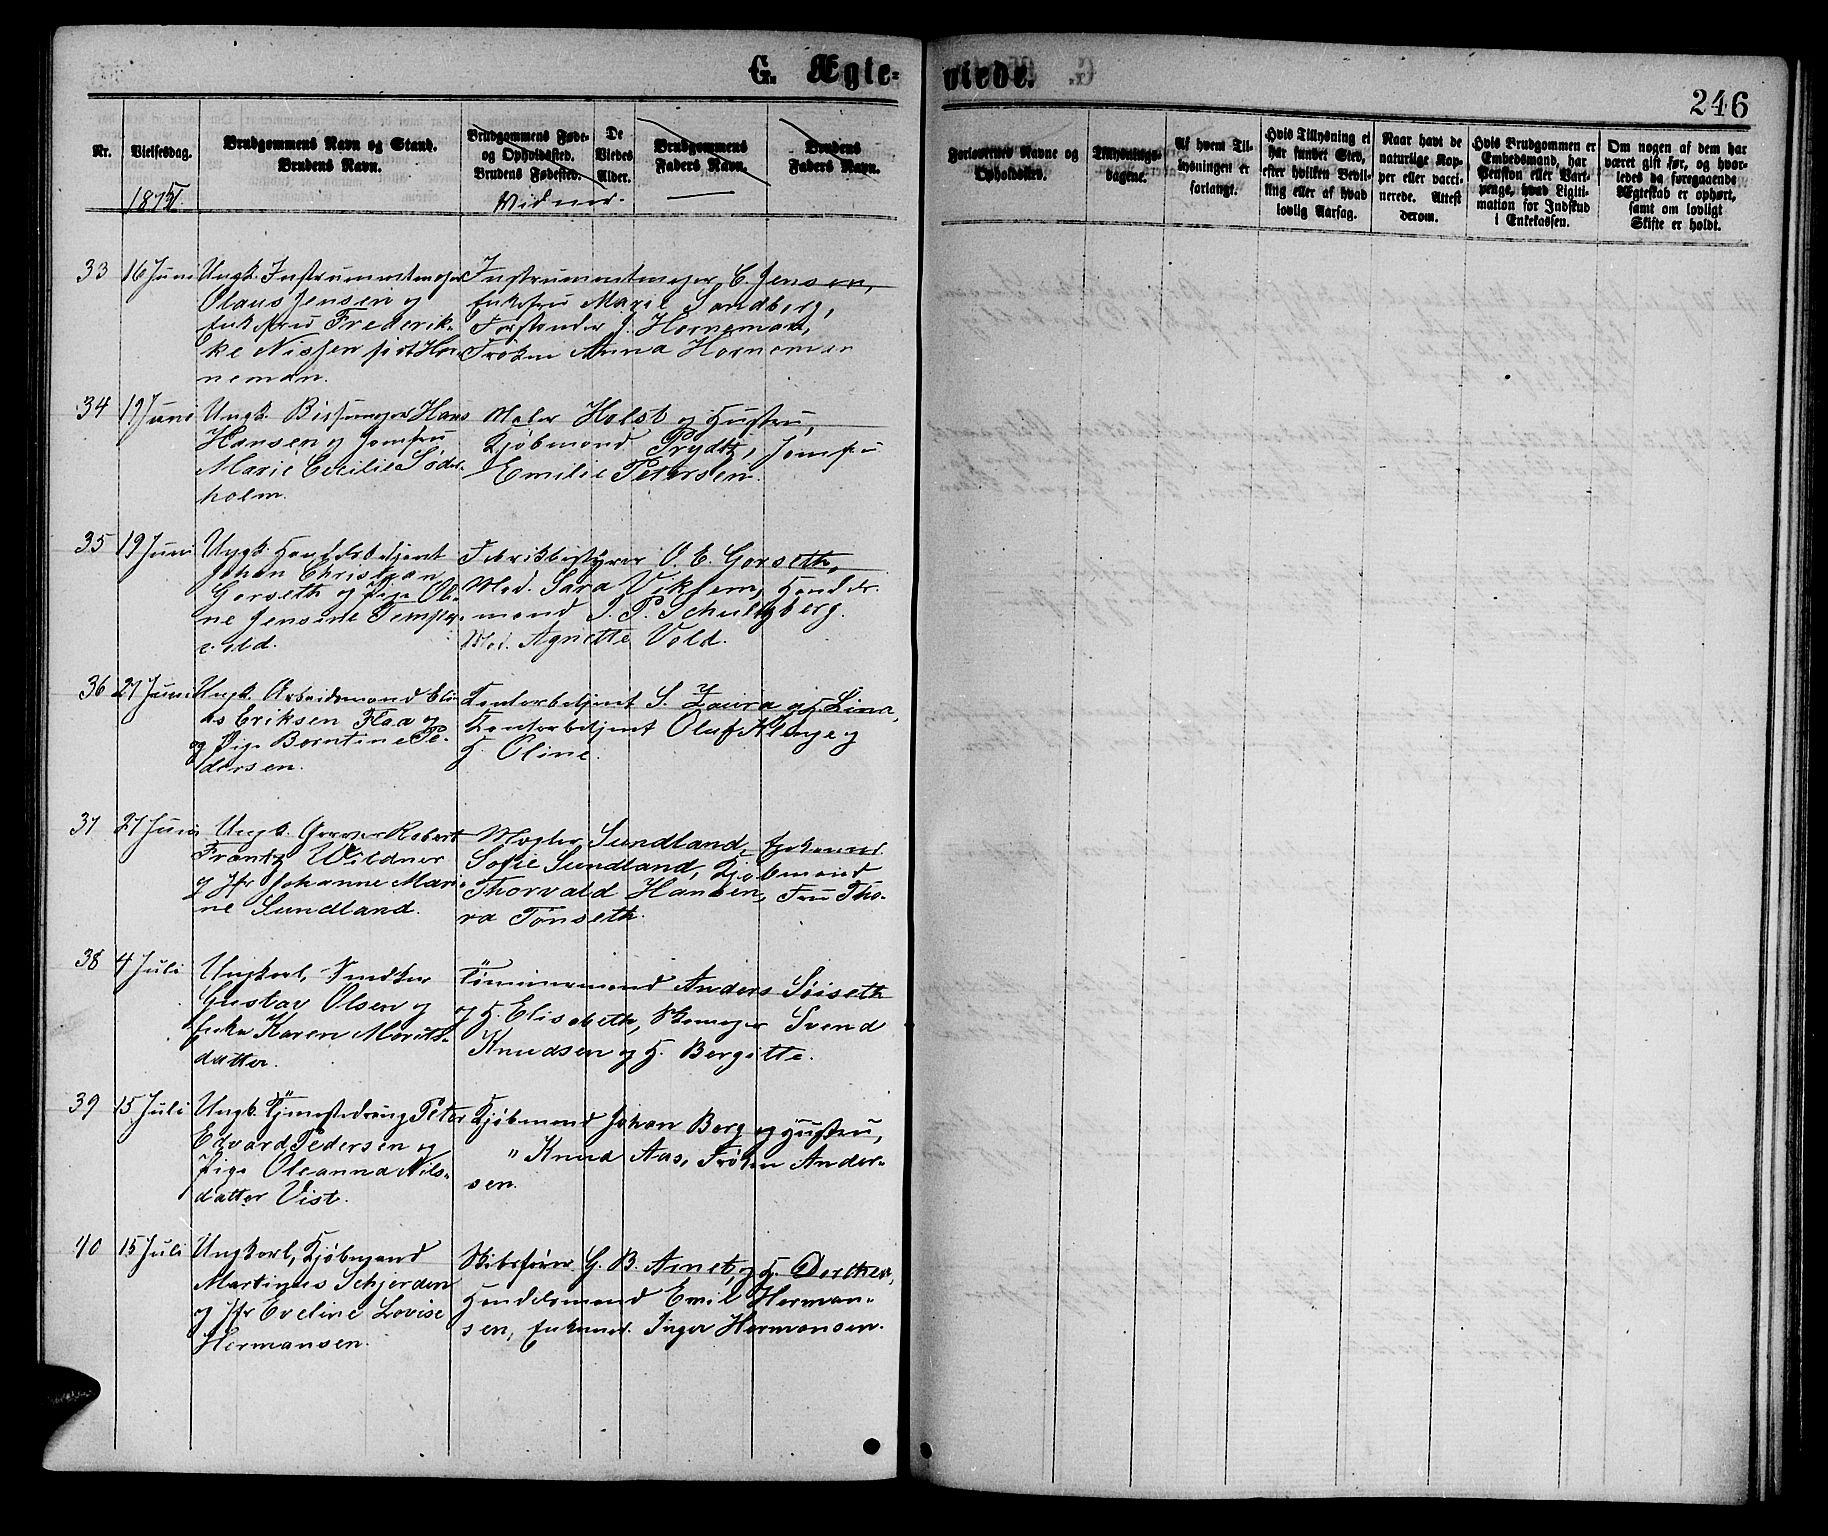 G. Ægte-
viede.
246
Nr.
Vielsesdag.
Brudgommens Navn og Stand.
Brudens Navn.
Brudgommens Føde-
og Opholdssted.
Brudens Fødested.
De
Viedes
Alder.
Brudgommens
Faders Navn.
Brudens
Faders Navn.
Forlovernes Navne og
Opholdssted.
Tillysnings-
dagene.
Af hvem Til-
lysningen er
forlangt.
Hvis Tillysning ei
har fundet Sted,
efter hvilken Bevil-
ling eller af hvad
lovlig Aarsag.
Naar havt de
naturlige Kop-
per eller vacci-
nerede. Attest
derom.
Hvis Brudgommen er
Embedsmand, har
Pension eller Vart-
penge, hvad Ligiti-
mation for Indskud
i Enkekassen.
Om nogen af dem har
været gift før, og hvor-
ledes da foregaaende
Ægteskab er ophørt,
samt om lovligt
Skifte er holdt.
1875.
Vidner.
33 16 Juni Ungk. Instrumentmager
Olaus Jensen og
Enkefru Frederik-
ke Nissen født Hor-
neman.
Instrumentmager C. Jensen,
Enkefru Marie Sandberg,
Forstander J. Horneman,
Frøken Anna Horneman
34 19 Juni Ungk. Hans
Hansen og Jomfru
Marie Cecilie Søder-
holm.
Maler Holst og Hustru,
Kjøbmand Prydtz, Jomfru
Emilie Petersen.
35 19 Juni Ungk. Handelsbetjent
Johan Christian
Gorseth og Pige Oli-
ne Jensine Tempel-
vold.
Fabrikbestyrer O. E. Gorseth,
Mad. Sara Viksem, Handels-
mand J. P. Schultzberg.
Mad. Agnette Vold.
36 27 Juni Ungk. Arbeidsmand Eli-
as Eriksen Flaa og
og Pige Borntine Pe-
dersen.
Kontorbetjent S. Zaura og H. Lina,
Kontorbetjent Oluf Klinge og
H. Oline.
37 27 Juni Ungk. Garver Robert
Frantz Wildner
og Jfr Johanne Mari-
ne Sundland.
Mægler Sundland, Enkemad.
Sofie Sundland, Kjøbmand
Thorvald Hansen, Fru Tho-
ra Tønseth.
38 4 Juli Ungkarl, Snedker
Gustav Olsen og
Enke Karen Morits-
datter.
Tømmermand Anders Søiseth
og H. Elisabeth, Skomager Svend
Knudsen og H. Bergitte.
39 15 Juli Ungk. Tjenestedreng Peter
Edvard Pedersen og
Pige Oleanna Nils-
datter Vist.
Kjøbmand Johan Berg og Hustru,
" Knud Aas, Frøken Ander-
sen.
40 15 Juli Ungkarl, Kjøbmand
Martinus Schjerden
og Jfr Eveline Lovise
Hermansen.
Skibsfører G. B. Arnet og H. Dorthea,
Handelsmand Emil Herman-
sen, Enkemad. Inger Hermansen.